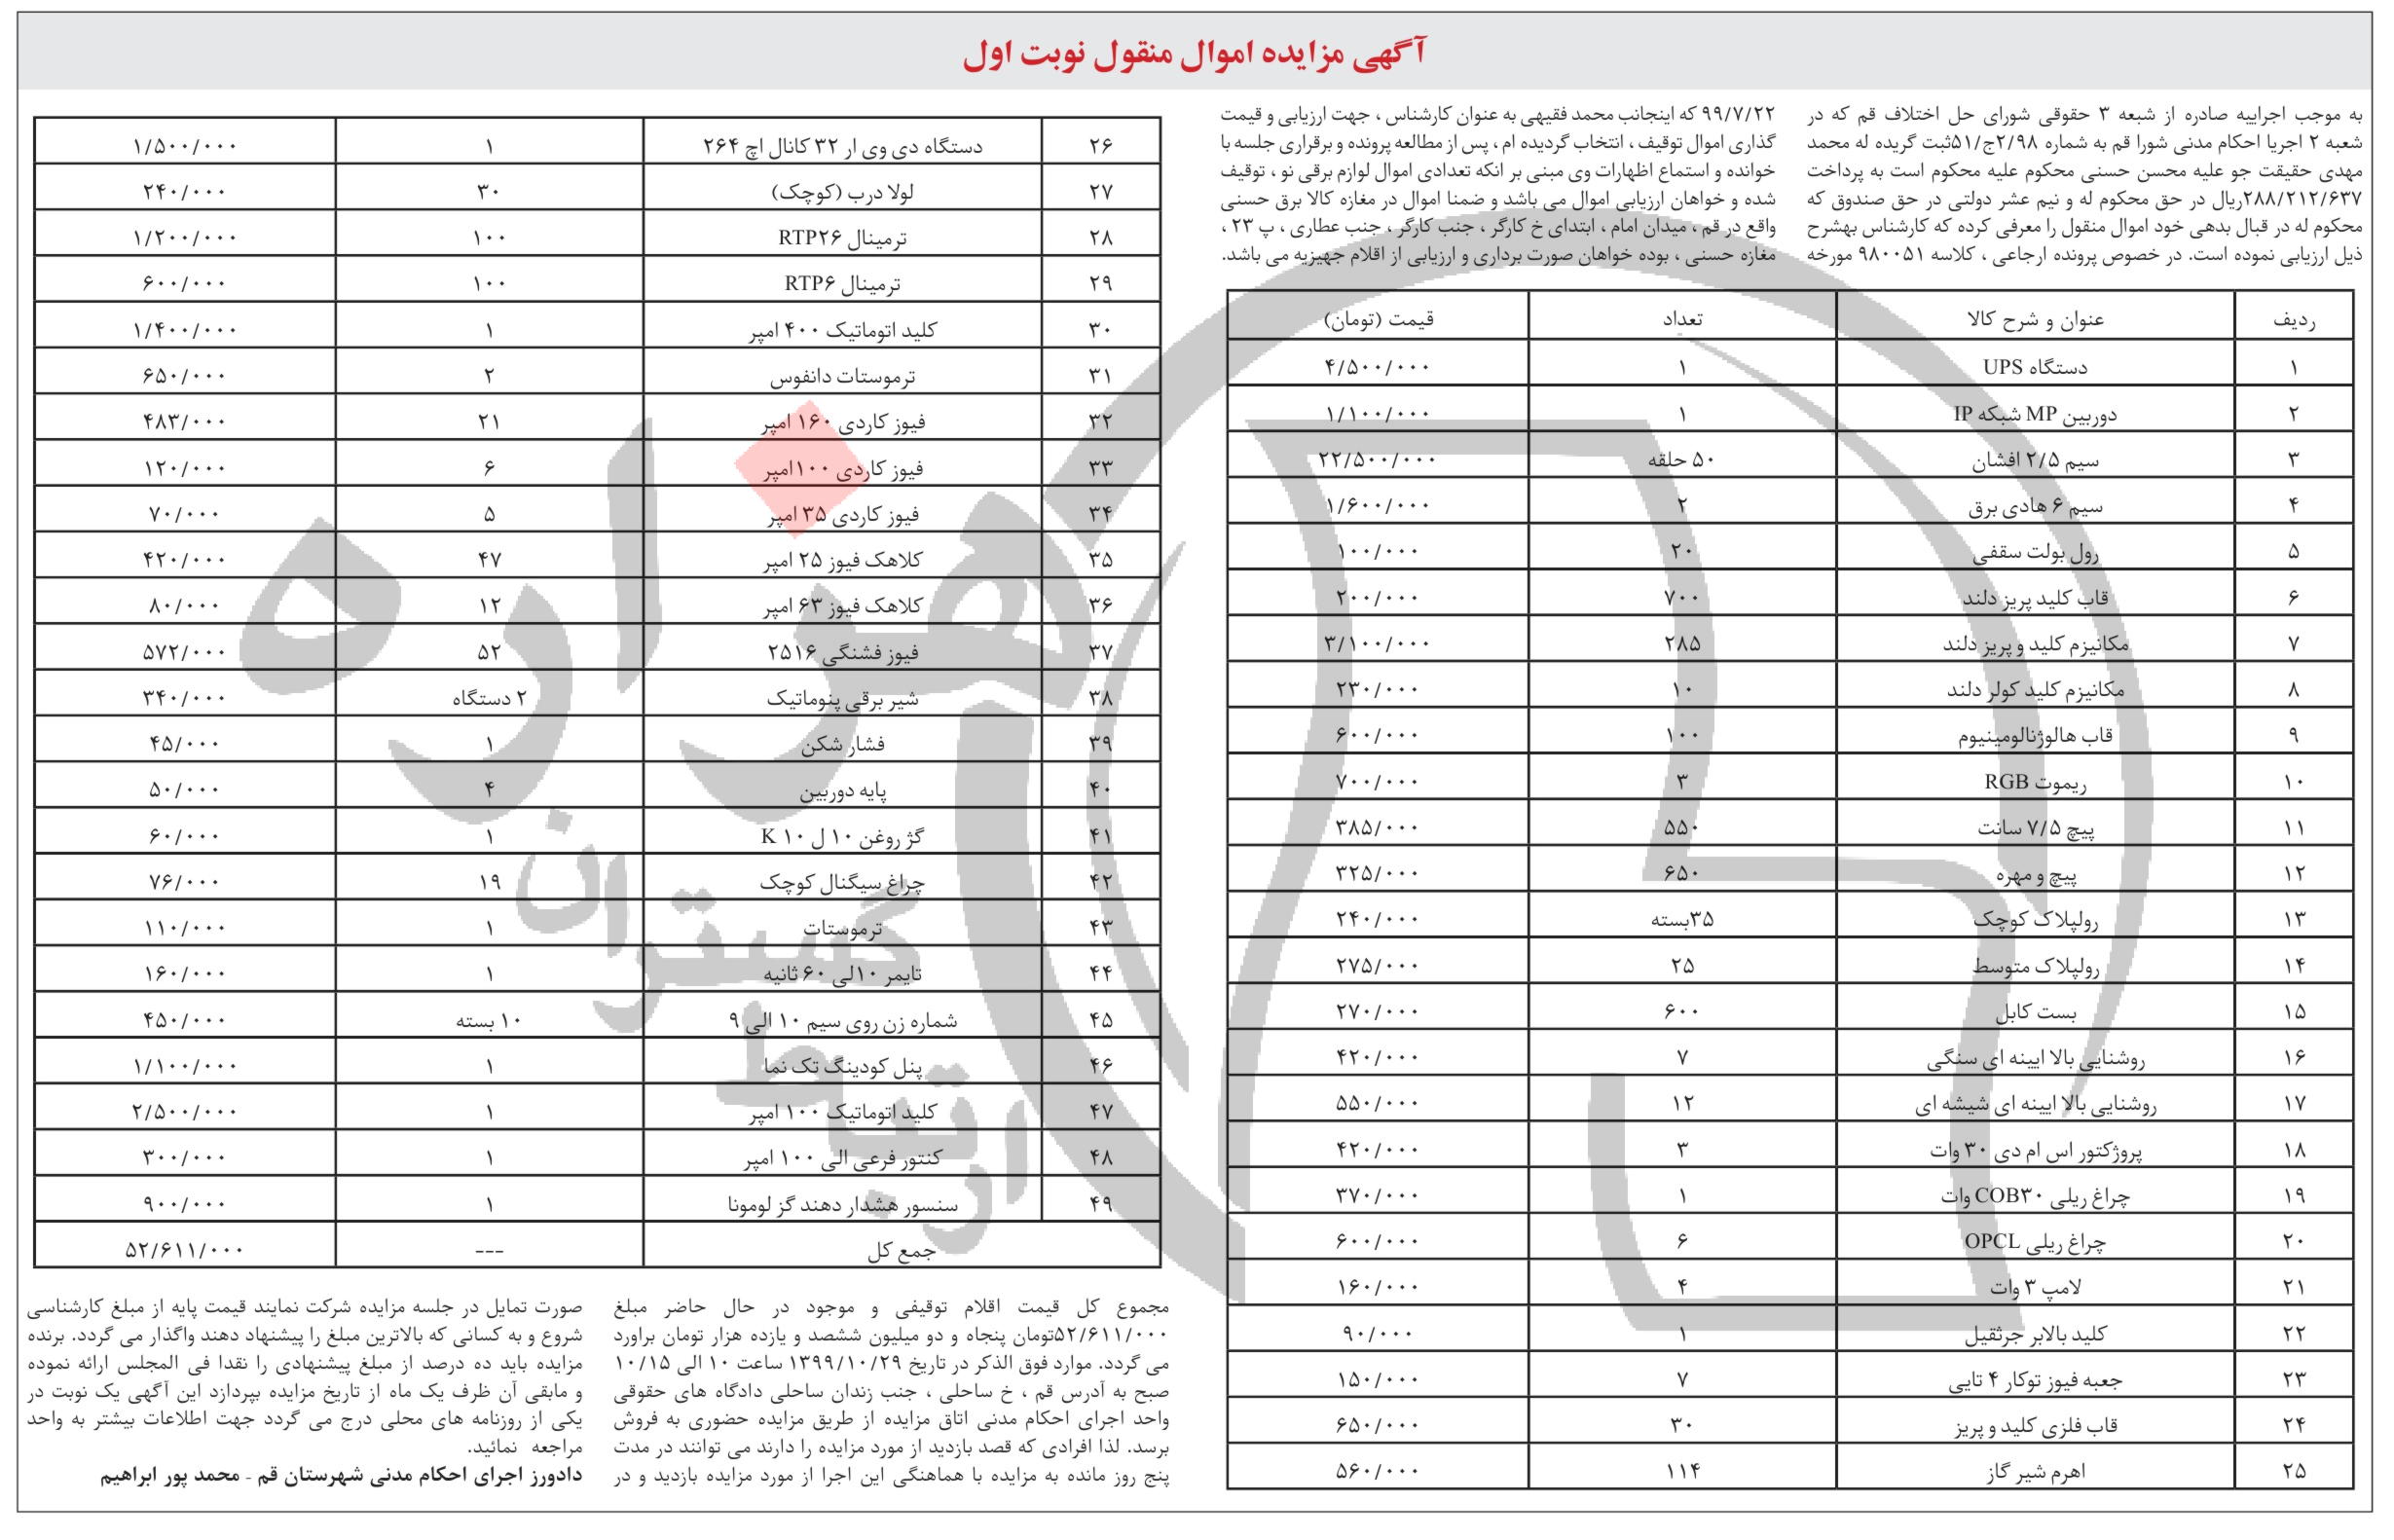 آگهی مزایده اموال منقول نوبت اول
به موجب اجراییه صادره از شعبه ۳ حقوقی شورای حل اختلاف قم که در
شعبه ۲ اجریا احکام مدنی شورا قم به شماره ۲/۹۸ج/۵۱ثبت گریده له محمد
مهدی حقیقت جو علیه محسن حسنی محکوم علیه محکوم است به پرداخت
۲۸۸/۲۱۲/۶۳۷ریال در حق محکوم له و نیم عشر دولتی در حق صندوق که
محکوم له در قبال بدهی خود اموال منقول را معرفی کرده که کارشناس بهشرح
ذیل ارزیابی نموده است. در خصوص پرونده ارجاعی ، کلاسه ۹۸۰۰۵۱ مورخه
۹۹/۷/۲۲ که اینجانب محمد فقیهی به عنوان کارشناس ، جهت ارزیابی و قیمت
گذاری اموال توقیف ، انتخاب گردیده ام ، پس از مطالعه پرونده و برقراری جلسه با
خوانده و استماع اظهارات وی مبنی بر انکه تعدادی اموال لوازم برقی نو ، توقیف
شده و خواهان ارزیابی اموال می باشد و ضمنا اموال در مغازه کالا برق حسنی
واقع در قم ، میدان امام ، ابتدای خ کارگر ، جنب کارگر ، جنب عطاری ، پ ۲۳ ،
مغازه حسنی ، بوده خواهان صورت برداری و ارزیابی از اقلام جهیزیه می باشد.
ردیف عنوان و شرح کالا تعداد قیمت (تومان)
۱ دستگاه UPS ۱ ۴/۵۰۰/۰۰۰
۲ دوربین MP شبکه IP ۱ ۱/۱۰۰/۰۰۰
۳ سیم ۲/۵ افشان ۵۰ حلقه ۲۲/۵۰۰/۰۰۰
۴ سیم ۶ هادی برق ۲ ۱/۶۰۰/۰۰۰
۵ رول بولت سقفی ۲۰ ۱۰۰/۰۰۰
۶ قاب کلید پریز دلند ۷۰۰ ۲۰۰/۰۰۰
۷ مکانیزم کلید و پریز دلند ۲۸۵ ۳/۱۰۰/۰۰۰
۸ مکانیزم کلید کولر دلند ۱۰ ۲۳۰/۰۰۰
۹ قاب هالوژنالومینیوم ۱۰۰ ۶۰۰/۰۰۰
۱۰ ریموت RGB ۳ ۷۰۰/۰۰۰
۱۱ پیچ ۷/۵ سانت ۵۵۰ ۳۸۵/۰۰۰
۱۲ پیچ و مهره ۶۵۰ ۳۲۵/۰۰۰
۱۳ رولپلاک کوچک ۳۵بسته ۲۴۰/۰۰۰
۱۴ رولپلاک متوسط ۲۵ ۲۷۵/۰۰۰
۱۵ بست کابل ۶۰۰ ۲۷۰/۰۰۰
۱۶ روشنایی بالا ایینه ای سنگی ۷ ۴۲۰/۰۰۰
۱۷ روشنایی بالا ایینه ای شیشه ای ۱۲ ۵۵۰/۰۰۰
۱۸ پروژکتور اس ام دی ۳۰ وات ۳ ۴۲۰/۰۰۰
۱۹ چراغ ریلی COB۳۰ وات ۱ ۳۷۰/۰۰۰
۲۰ چراغ ریلی OPCL ۶ ۶۰۰/۰۰۰
۲۱ لامپ ۳ وات ۴ ۱۶۰/۰۰۰
۲۲ کلید بالابر جرثقیل ۱ ۹۰/۰۰۰
۲۳ جعبه فیوز توکار ۴ تایی ۷ ۱۵۰/۰۰۰
۲۴ قاب فلزی کلید و پریز ۳۰ ۶۵۰/۰۰۰
۲۵ اهرم شیر گاز ۱۱۴ ۵۶۰/۰۰۰
۲۶ دستگاه دی وی ار ۳۲ کانال اچ ۲۶۴ ۱ ۱/۵۰۰/۰۰۰
۲۷ لولا درب (کوچک) ۳۰ ۲۴۰/۰۰۰
۲۸ ترمینال RTP۲۶ ۱۰۰ ۱/۲۰۰/۰۰۰
۲۹ ترمینال RTP۶ ۱۰۰ ۶۰۰/۰۰۰
۳۰ کلید اتوماتیک ۴۰۰ امپر ۱ ۱/۴۰۰/۰۰۰
۳۱ ترموستات دانفوس ۲ ۶۵۰/۰۰۰
۳۲ فیوز کاردی ۱۶۰ امپر ۲۱ ۴۸۳/۰۰۰
۳۳ فیوز کاردی ۱۰۰امپر ۶ ۱۲۰/۰۰۰
۳۴ فیوز کاردی ۳۵ امپر ۵ ۷۰/۰۰۰
۳۵ کلاهک فیوز ۲۵ امپر ۴۷ ۴۲۰/۰۰۰
۳۶ کلاهک فیوز ۶۳ امپر ۱۲ ۸۰/۰۰۰
۳۷ فیوز فشنگی ۲۵۱۶ ۵۲ ۵۷۲/۰۰۰
۳۸ شیر برقی پنوماتیک ۲ دستگاه ۳۴۰/۰۰۰
۳۹ فشار شکن ۱ ۴۵/۰۰۰
۴۰ پایه دوربین ۴ ۵۰/۰۰۰
۴۱ گژ روغن ۱۰ ل ۱۰ K ۱ ۶۰/۰۰۰
۴۲ چراغ سیگنال کوچک ۱۹ ۷۶/۰۰۰
۴۳ ترموستات ۱ ۱۱۰/۰۰۰
۴۴ تایمر ۱۰لی ۶۰ ثانیه ۱ ۱۶۰/۰۰۰
۴۵ شماره زن روی سیم ۱۰ الی ۹ ۱۰ بسته ۴۵۰/۰۰۰
۴۶ پنل کودینگ تک نما ۱ ۱/۱۰۰/۰۰۰
۴۷ کلید اتوماتیک ۱۰۰ امپر ۱ ۲/۵۰۰/۰۰۰
۴۸ کنتور فرعی الی ۱۰۰ امپر ۱ ۳۰۰/۰۰۰
۴۹ سنسور هشدار دهند گز لومونا ۱ ۹۰۰/۰۰۰
جمع کل --- ۵۲/۶۱۱/۰۰۰
مجموع کل قیمت اقلام توقیفی و موجود در حال حاضر مبلغ
۵۲/۶۱۱/۰۰۰تومان پنجاه و دو میلیون ششصد و یازده هزار تومان براورد
می گردد. موارد فوق الذکر در تاریخ ۱۳۹۹/۱۰/۲۹ ساعت ۱۰ الی ۱۰/۱۵
صبح به آدرس قم ، خ ساحلی ، جنب زندان ساحلی دادگاه های حقوقی
واحد اجرای احکام مدنی اتاق مزایده از طریق مزایده حضوری به فروش
برسد. لذا افرادی که قصد بازدید از مورد مزایده را دارند می توانند در مدت
پنج روز مانده به مزایده با هماهنگی این اجرا از مورد مزایده بازدید و در
صورت تمایل در جلسه مزایده شرکت نمایند قیمت پایه از مبلغ کارشناسی
شروع و به کسانی که بالاترین مبلغ را پیشنهاد دهند واگذار می گردد. برنده
مزایده باید ده درصد از مبلغ پیشنهادی را نقدا فی المجلس ارائه نموده
و مابقی آن ظرف یک ماه از تاریخ مزایده بپردازد این آگهی یک نوبت در
یکی از روزنامه های محلی درج می گردد جهت اطلاعات بیشتر به واحد
مراجعه نمائید.
دادورز اجرای احکام مدنی شهرستان قم - محمد پور ابراهیم
هزاره
گستران
ارتباط